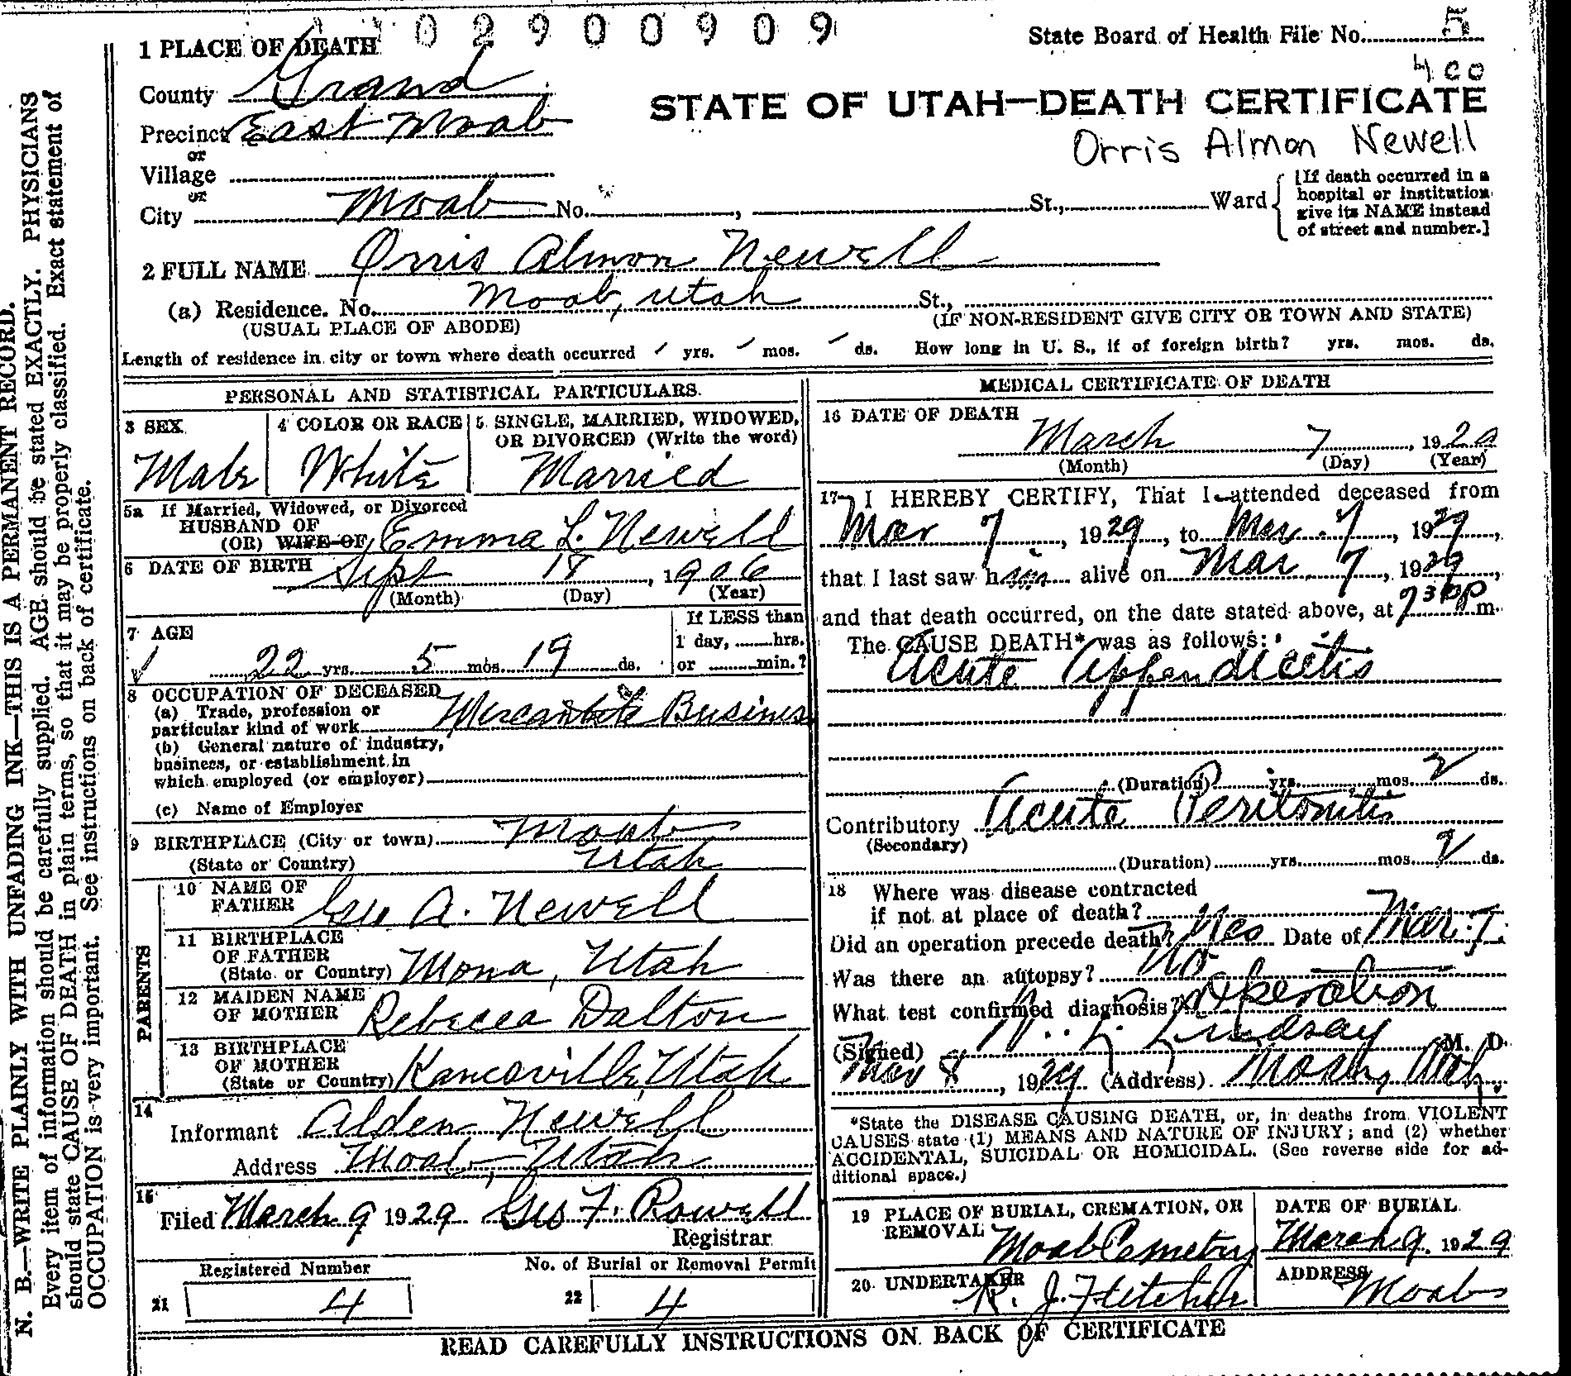 02900909
State Board of Health File No. 5
400
1 PLACE OF DEATH
County Grand
STATE OF UTAH—DEATH CERTIFICATE
Precinct East Moab
Orris Almon Newell
or
Village
or
City Moab No. , St., Ward
[If death occurred in a
hospital or institution
give its NAME instead
of street and number.]
2 FULL NAME Orris Almon Newell
(a) Residence. No. Moab, Utah St.,
(USUAL PLACE OF ABODE) (IF NON-RESIDENT GIVE CITY OR TOWN AND STATE)
Length of residence in city or town where death occurred yrs. mos. ds. How long in U. S., if of foreign birth? yrs. mos. ds.
PERSONAL AND STATISTICAL PARTICULARS.
3 SEX
Male
4 COLOR OR RACE
White
5 SINGLE, MARRIED, WIDOWED,
OR DIVORCED (Write the word)
Married
5a If Married, Widowed, or Divorced
HUSBAND OF
(OR) WIFE OF Emma L. Newell
6 DATE OF BIRTH Sept 18, 1906
(Month) (Day) (Year)
7 AGE
22 yrs 5 mos 19 ds.
If LESS than
1 day, hrs.
or min.?
8 OCCUPATION OF DECEASED
(a) Trade, profession or
particular kind of work Mercantile Business
(b) General nature of industry,
business, or establishment in
which employed (or employer)
(c) Name of Employer
9 BIRTHPLACE (City or town) Moab
(State or Country) Utah
PARENTS
10 NAME OF
FATHER Geo A. Newell
11 BIRTHPLACE
OF FATHER
(State or Country) Mona, Utah
12 MAIDEN NAME
OF MOTHER Rebecca Dalton
13 BIRTHPLACE
OF MOTHER
(State or Country) Kanosville, Utah
14
Informant Alden Newell
Address Moab, Utah
15
Filed March 9 1929 Geo F. Rowell
Registrar
Registered Number
21 4
No. of Burial or Removal Permit
22 4
MEDICAL CERTIFICATE OF DEATH
16 DATE OF DEATH
March 7, 1929
(Month) (Day) (Year)
17 I HEREBY CERTIFY, That I attended deceased from
Mar 7, 1929, to Mar. 7, 1929,
that I last saw him alive on Mar. 7, 1929,
and that death occurred, on the date stated above, at 730P m.
The CAUSE DEATH* was as follows:
Acute Appendicitis
(Duration) yrs. mos. 2 ds.
Contributory Acute Peritonitis
(Secondary)
(Duration) yrs. mos. 2 ds.
18 Where was disease contracted
if not at place of death?
Did an operation precede death? Yes Date of Mar. 7.
Was there an autopsy? No
What test confirmed diagnosis? Operation
(Signed) Lindsay M. D.
Mar 8, 1929 (Address) Moab, Utah.
*State the DISEASE CAUSING DEATH, or, in deaths from VIOLENT
CAUSES state (1) MEANS AND NATURE OF INJURY; and (2) whether
ACCIDENTAL, SUICIDAL OR HOMICIDAL. (See reverse side for ad-
ditional space.)
19 PLACE OF BURIAL, CREMATION, OR
REMOVAL Moab Cemetery
DATE OF BURIAL
March 9. 1929
20 UNDERTAKER
R. J. Fletcher
ADDRESS
Moab
READ CAREFULLY INSTRUCTIONS ON BACK OF CERTIFICATE
N. B.—WRITE PLAINLY WITH UNFADING INK—THIS IS A PERMANENT RECORD.
Every item of information should be carefully supplied. AGE should be stated EXACTLY. PHYSICIANS
should state CAUSE OF DEATH in plain terms, so that it may be properly classified. Exact statement of
OCCUPATION is very important. See instructions on back of certificate.